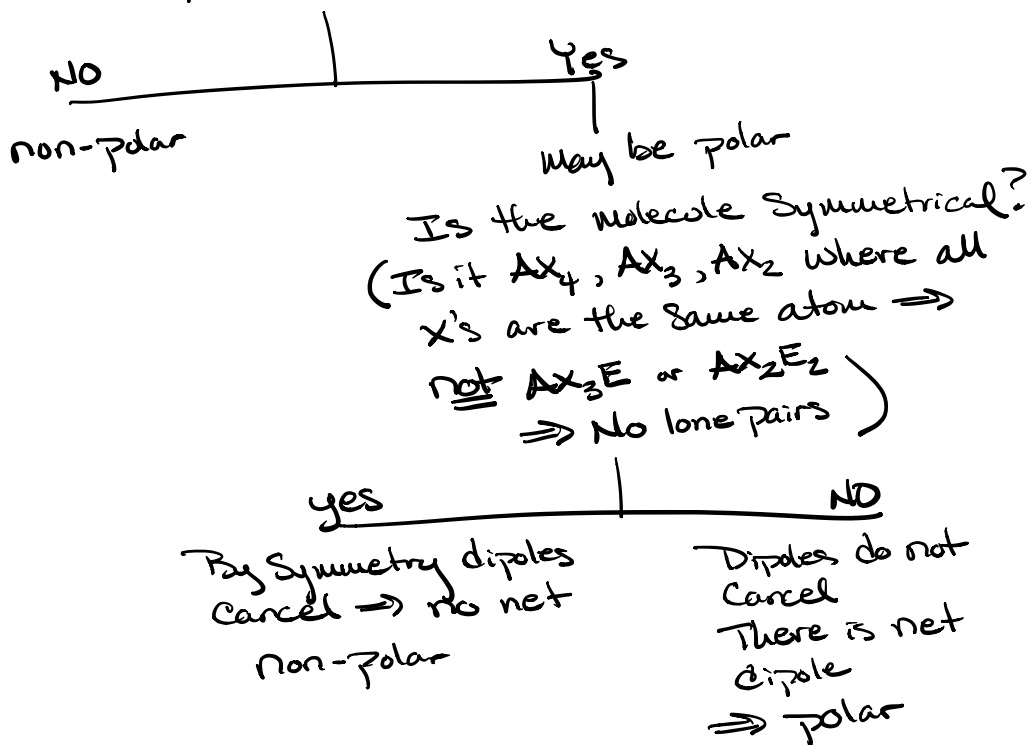 NO
Yes
non-polar
May be polar
Is the molecule Symmetrical?
(Is it AX₄, AX₃, AX₂ where all
X's are the same atom ⇒
not AX₃E or AX₂E₂
⇒ No lone pairs)
yes
NO
By Symmetry dipoles
Cancel → no net
non-polar
Dipoles do not
Cancel
There is net
dipole
⇒ polar